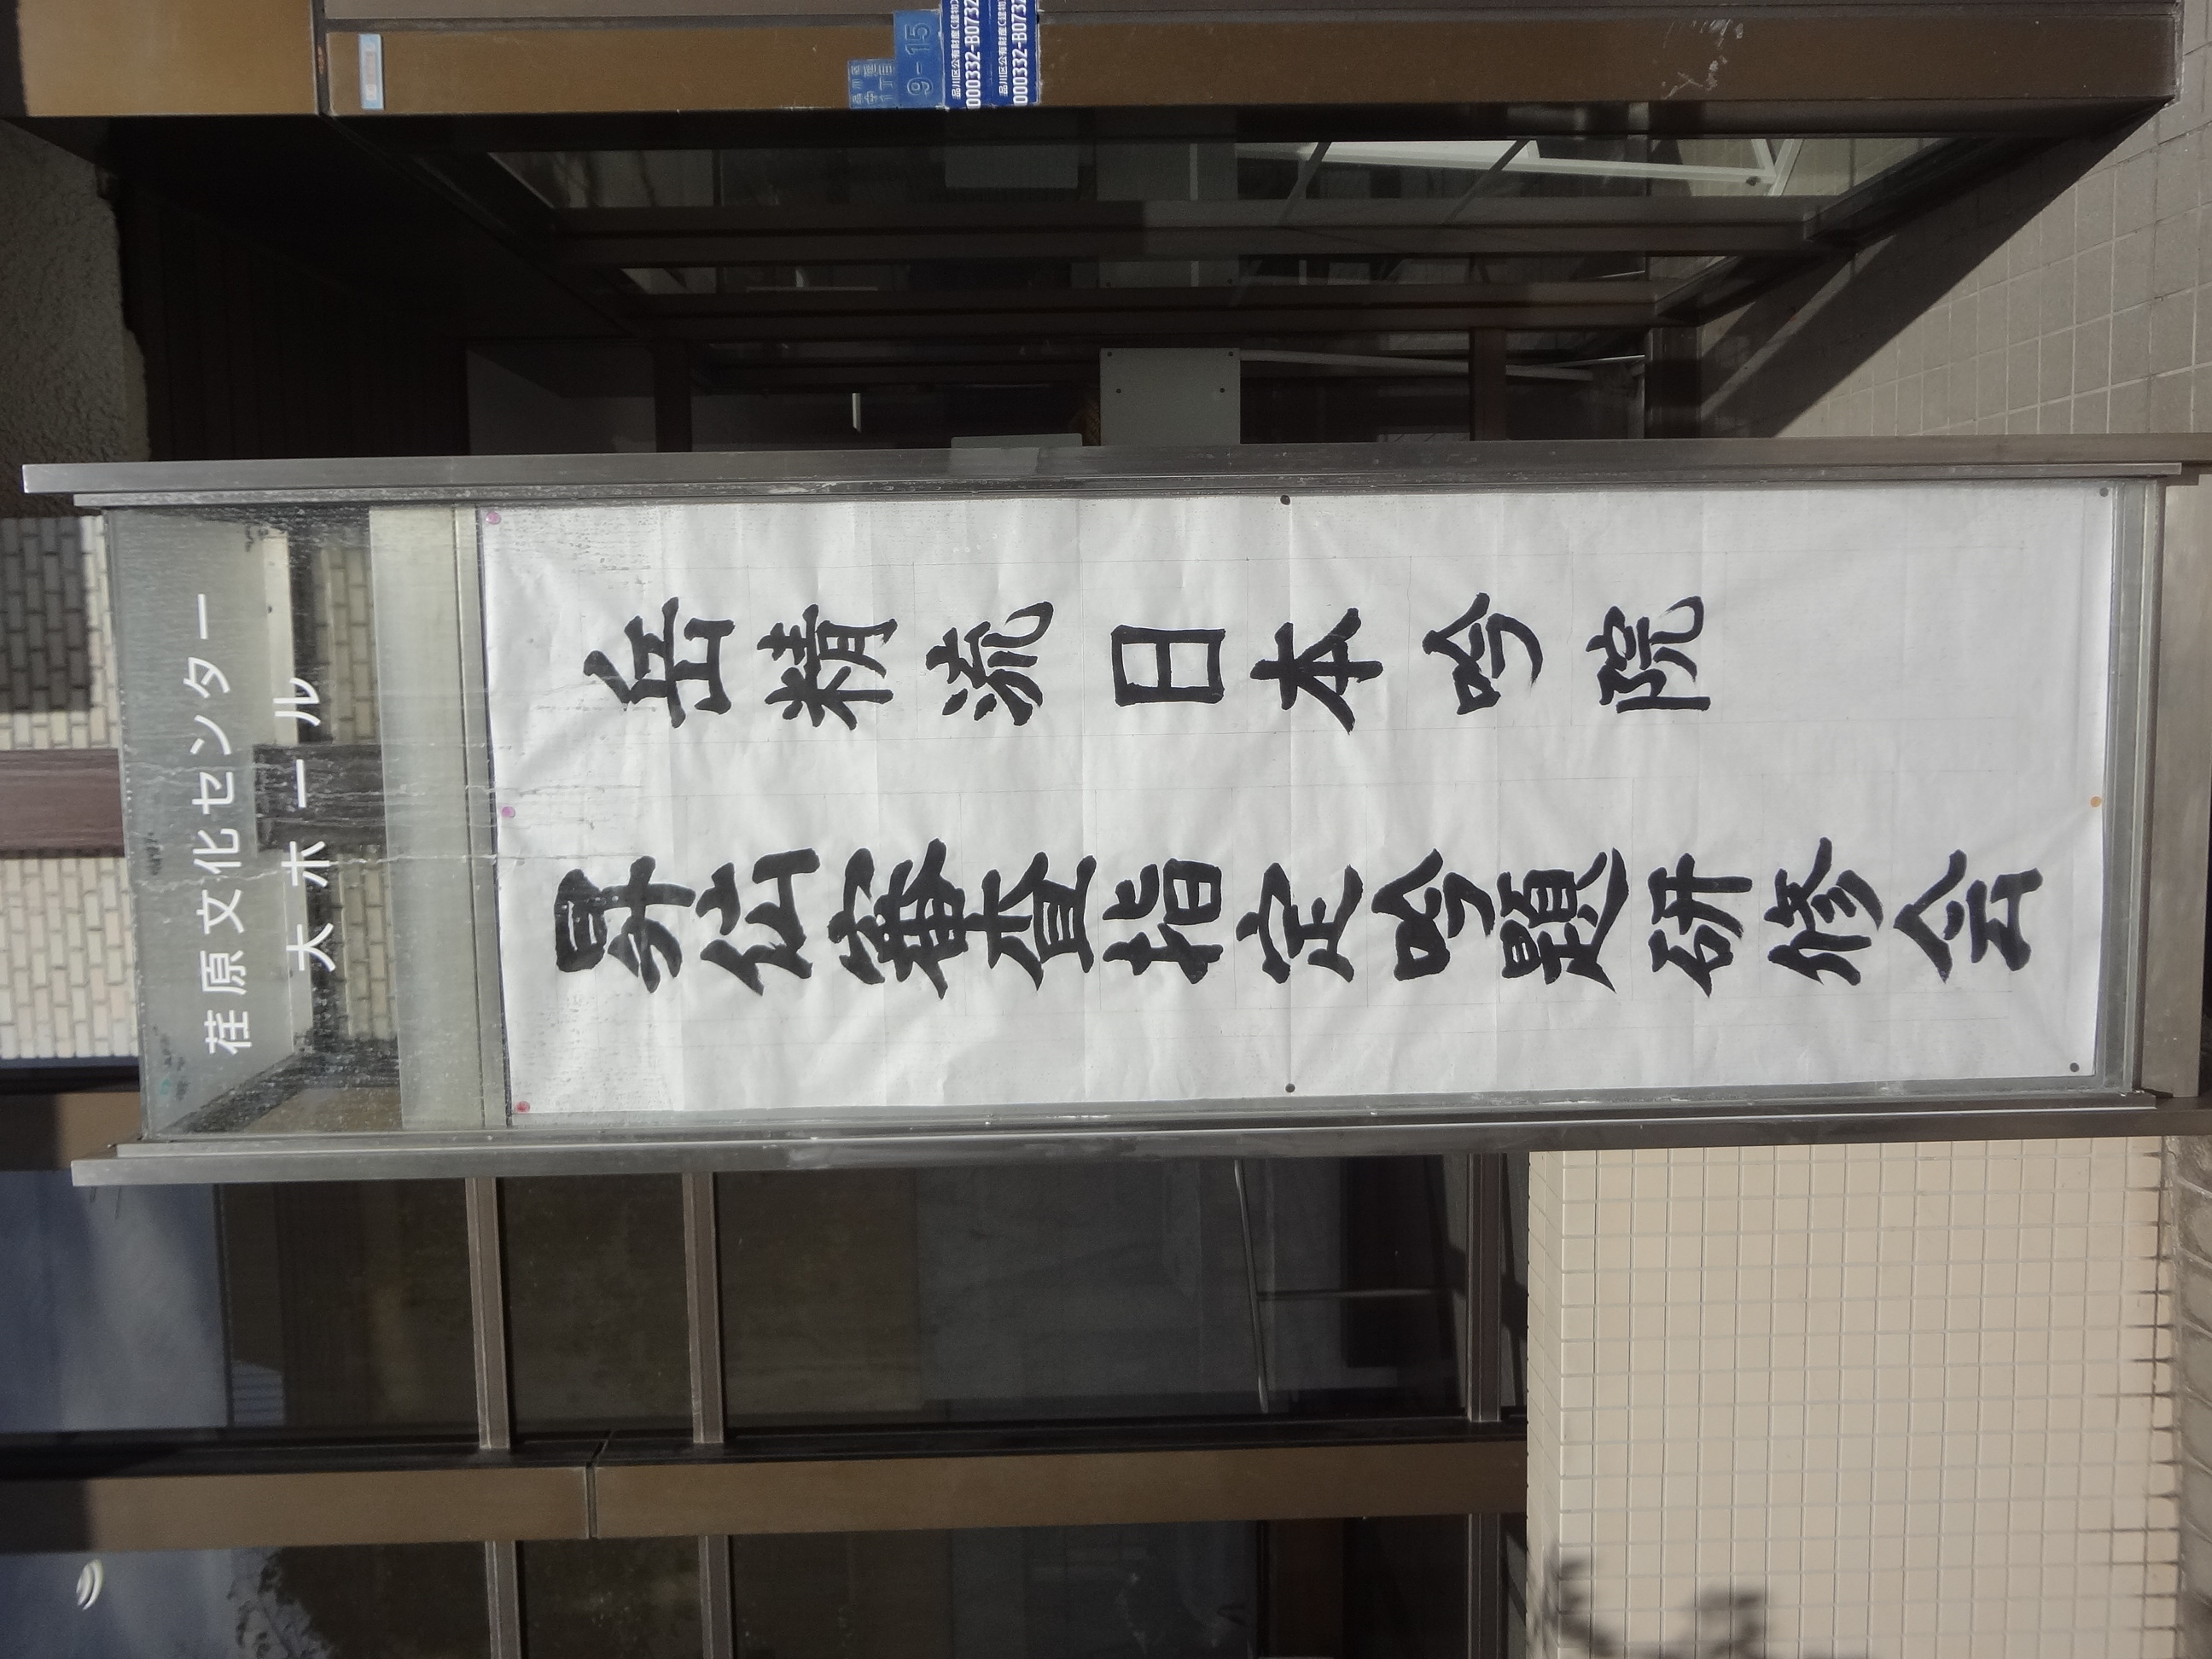 荏原文化センター
大ホール
岳精流日本吟院
昇仙審査指定吟題研修会
品川区
中延
1丁目
9-15
品川区公有財産(建物)
000332-B0732
品川区公有財産(建物)
000332-B0732